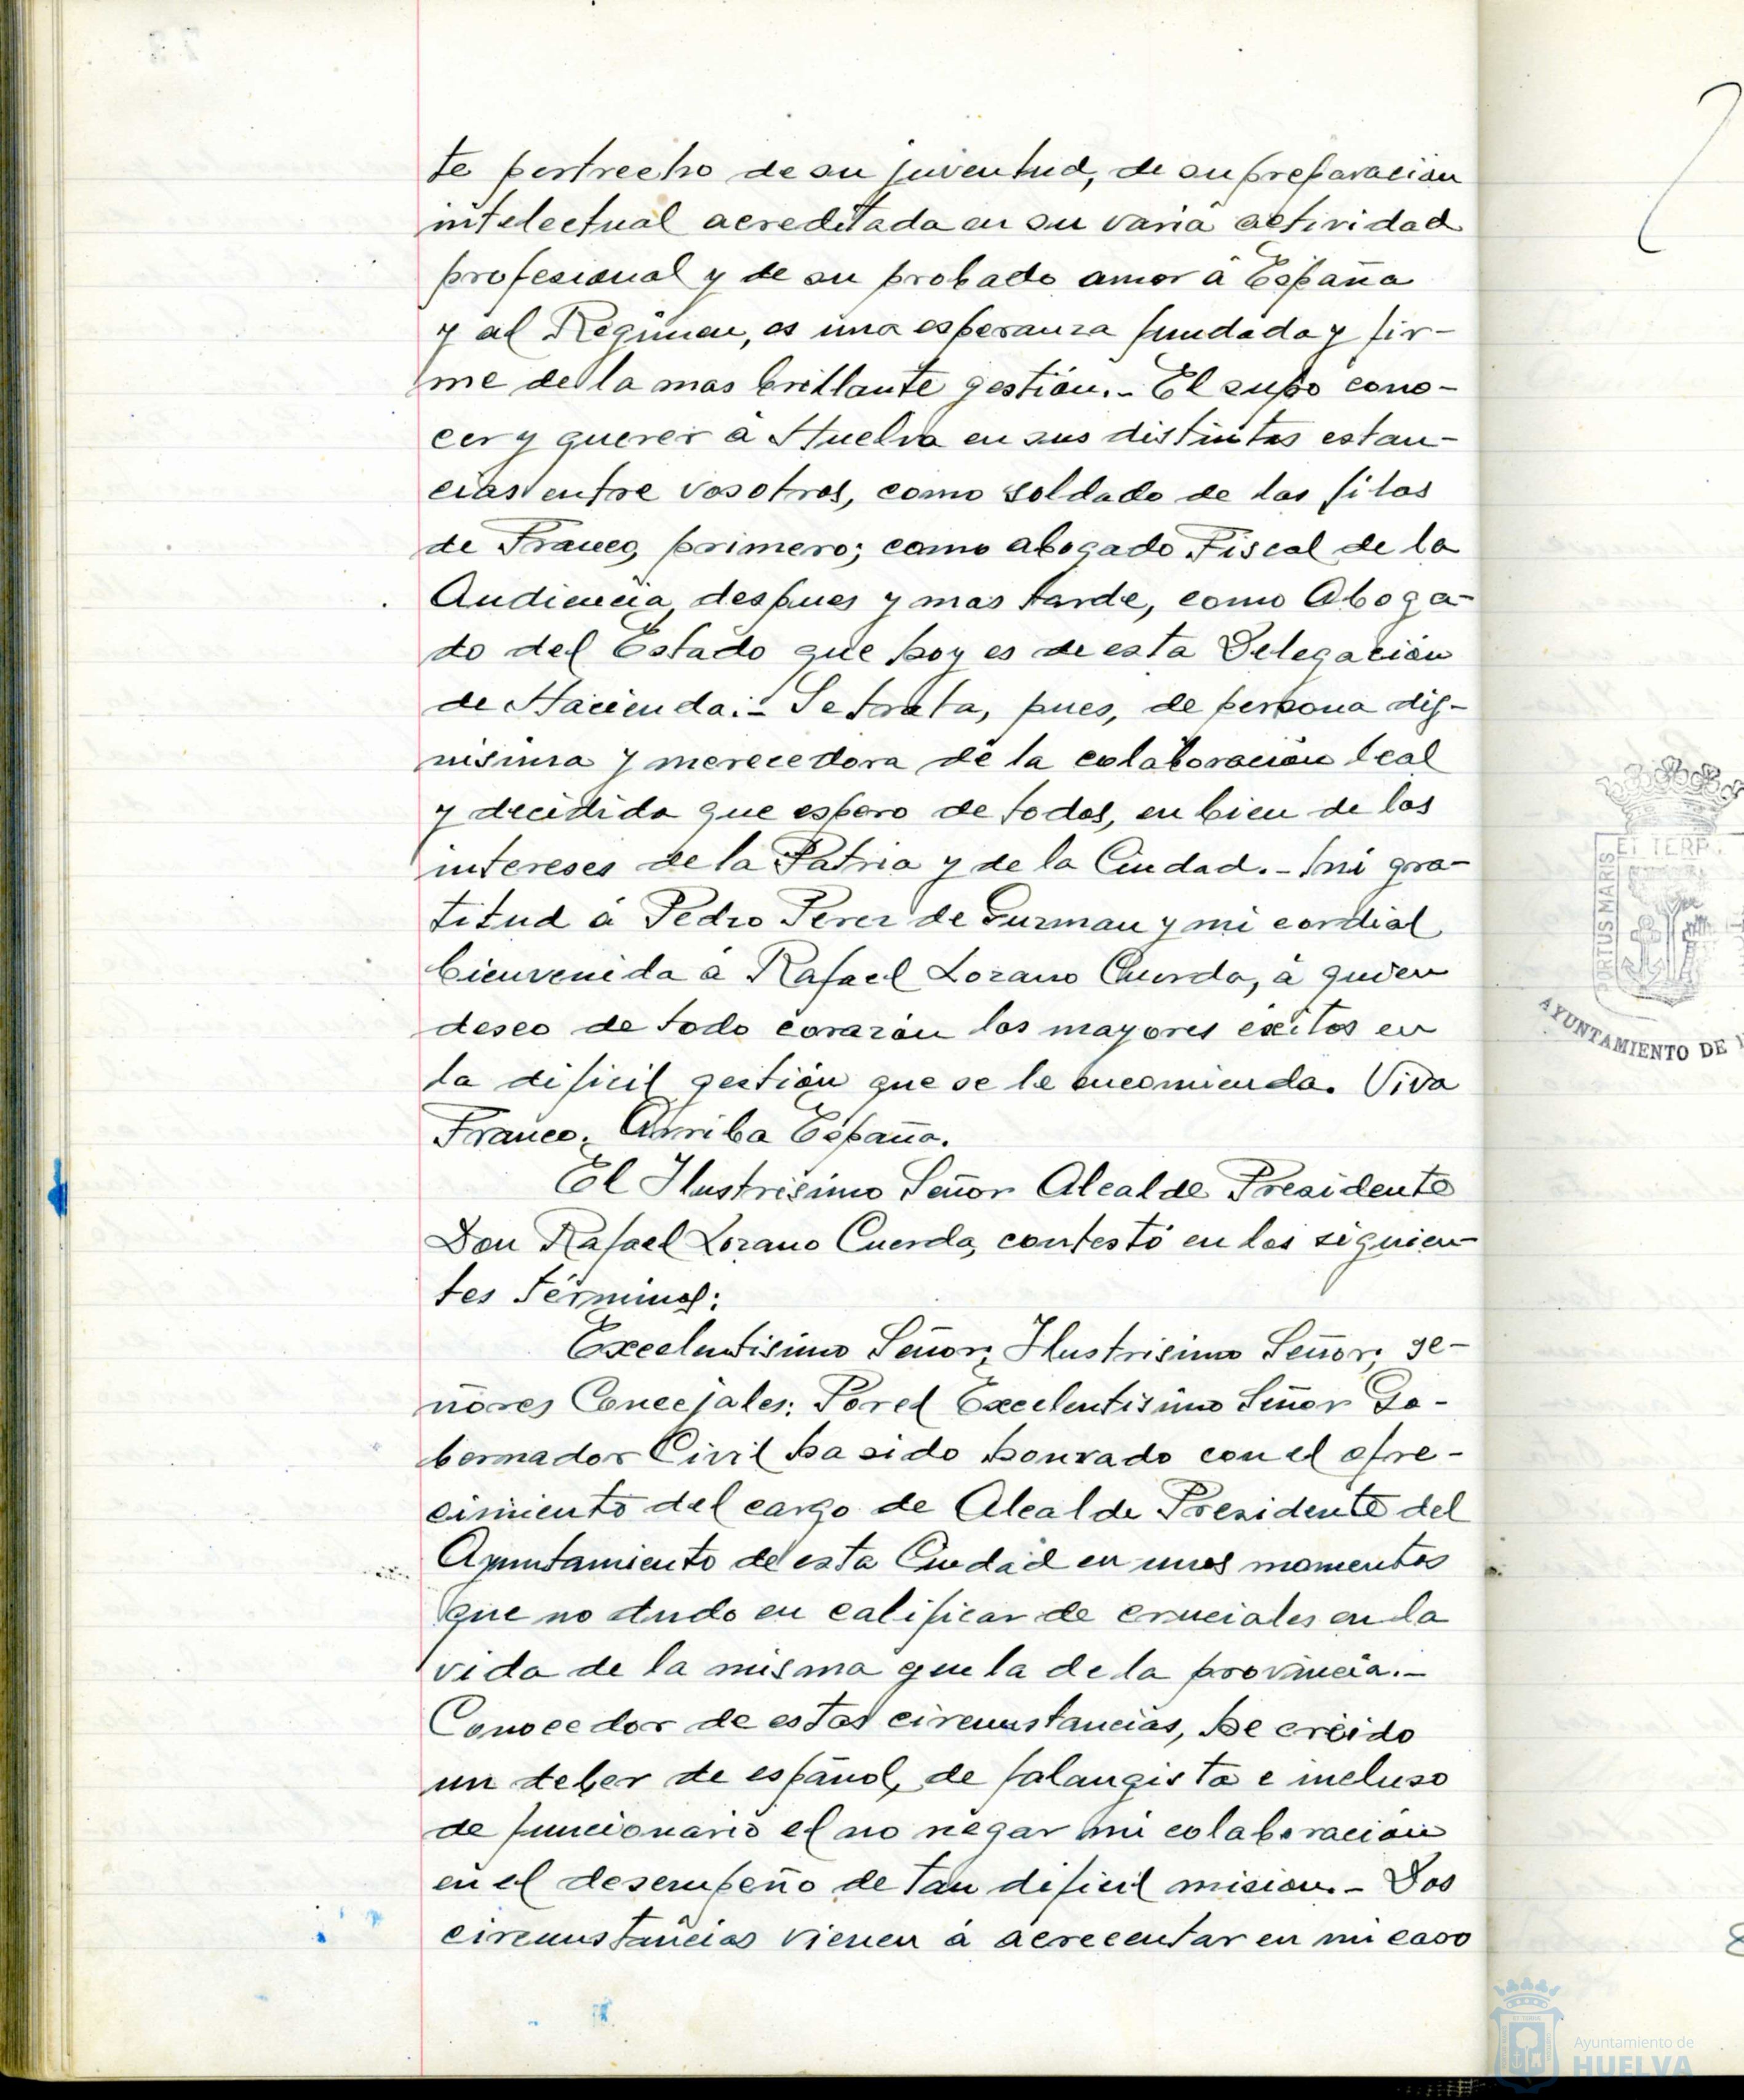 te pertrecho de su juventud, de su preparación
intelectual acreditada en su varia actividad
profesional y de su probado amor á España
y al Regimen, es una esperanza fundada y fir-
me de la mas brillante gestión.- El supo cono-
cer y querer á Huelva en sus distintas estan-
cias entre vosotros, como soldado de las filas
de Franco, primero; como abogado Fiscal de la
Audiencia, despues y mas tarde, como Aboga-
do del Estado que hoy es de esta Delegación
de Hacienda.- Se trata, pues, de persona dig-
nisima y merecedora de la colaboración leal
y decidida que espero de todos, en bien de los
intereses de la Patria y de la Ciudad.- Mi gra-
titud á Pedro Perez de Guzman y mi cordial
bienvenida á Rafael Lozano Cuerda, á quien
deseo de todo corazón los mayores exitos en
la dificil gestión que se le encomienda. Viva
Franco. Arriba España.
El Ilustrisimo Señor Alcalde Presidente
Don Rafael Lozano Cuerda, contestó en los siguien-
tes términos:
Excelentisimo Señor, Ilustrisimo Señor, se-
ñores Concejales: Por el Excelentisimo Señor Go-
bernador Civil ha sido honrado con el ofre-
cimiento del cargo de Alcalde Presidente del
Ayuntamiento de esta Ciudad en unos momentos
que no dudo en calificar de cruciales en la
vida de la misma que la de la provincia.-
Conocedor de estas circunstancias, he creido
un deber de español, de falangista e incluso
de funcionario el no negar mi colaboración
en el desempeño de tan dificil mision.- Dos
circunstancias vienen á acrecentar en mi caso
PORTUS MARIS
ET TERR.
AYUNTAMIENTO DE
Ayuntamiento de
HUELVA